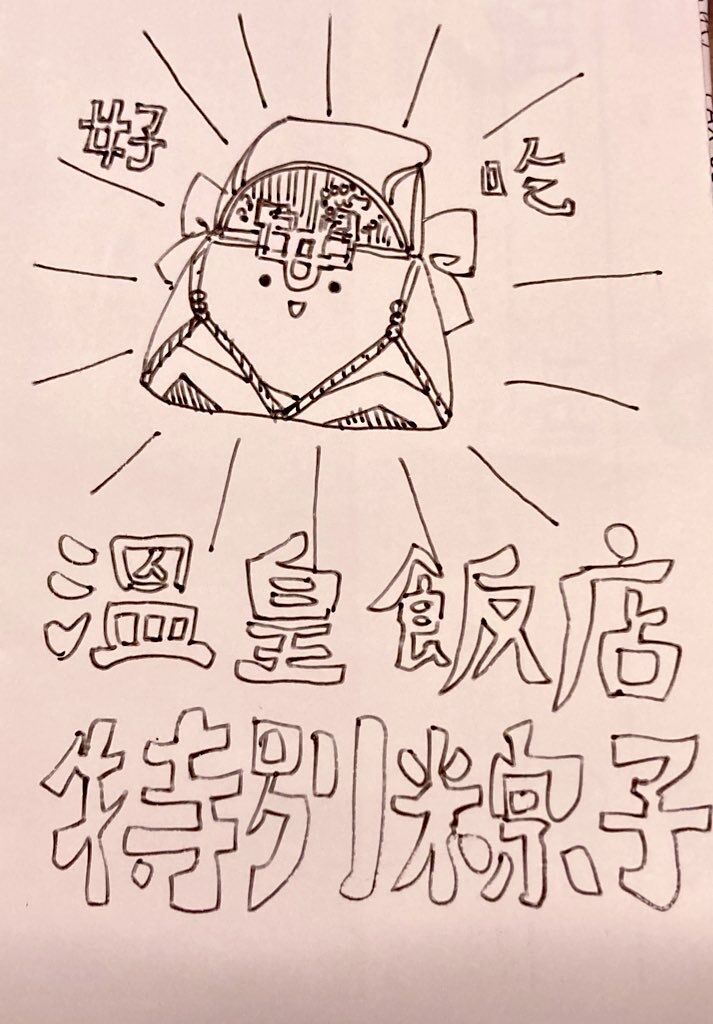 好吃
溫皇飯店
特別粽子